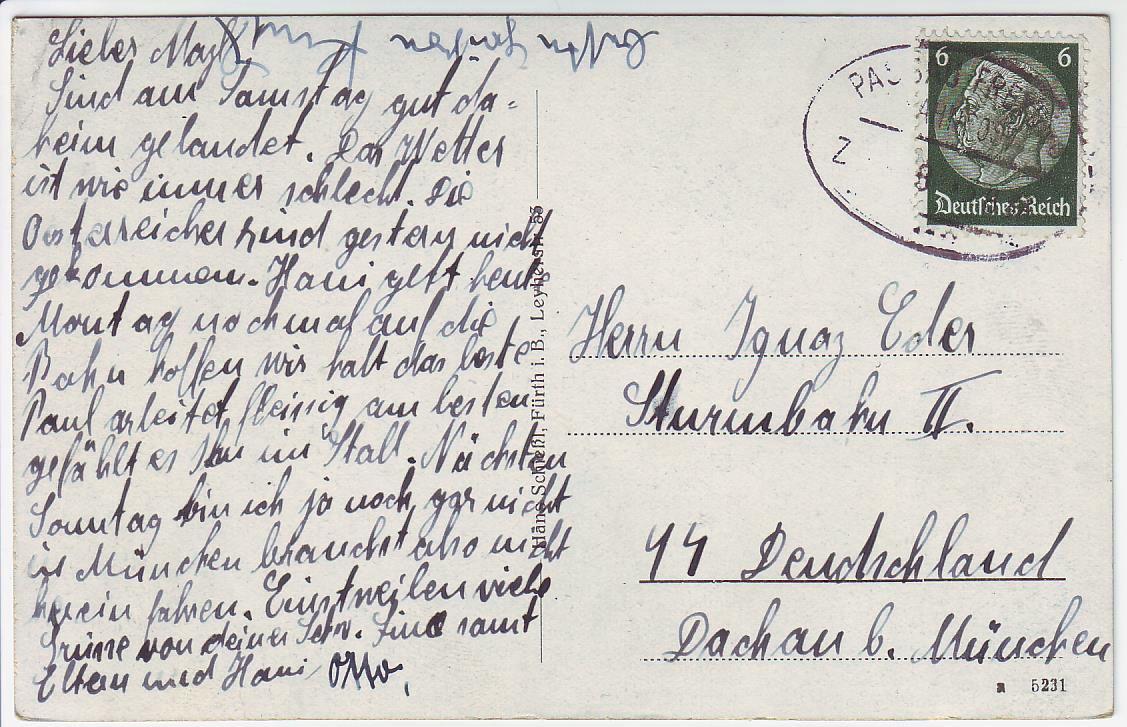 Lieber Magl
Sind am Samstag gut da-
heim gelandet. Das Wetter
ist wie immer schlecht. Die
Oesterreicher sind gestern nicht
gekommen. Hani gett heute
Montag nochmal auf die
Bahn hoffen wir halt das beste
Paul arbeitet fleissig am besten
gefählt es Ihn im Stall. Nächsten
Sonntag bin ich ja noch gar nicht
in München brauchst also nicht
herein fahren. Einstweilen viele
Grüsse von deiner samt
Eltern und Hani Otto.
Hans Schießl, Fürth i. B., Leyherstr. 53
PAS
Z
6 6
Deutsches Reich
Herrn Ignaz Eder
Sturmbahn II.
44 Deudschland
Dachau b. München
a 5231